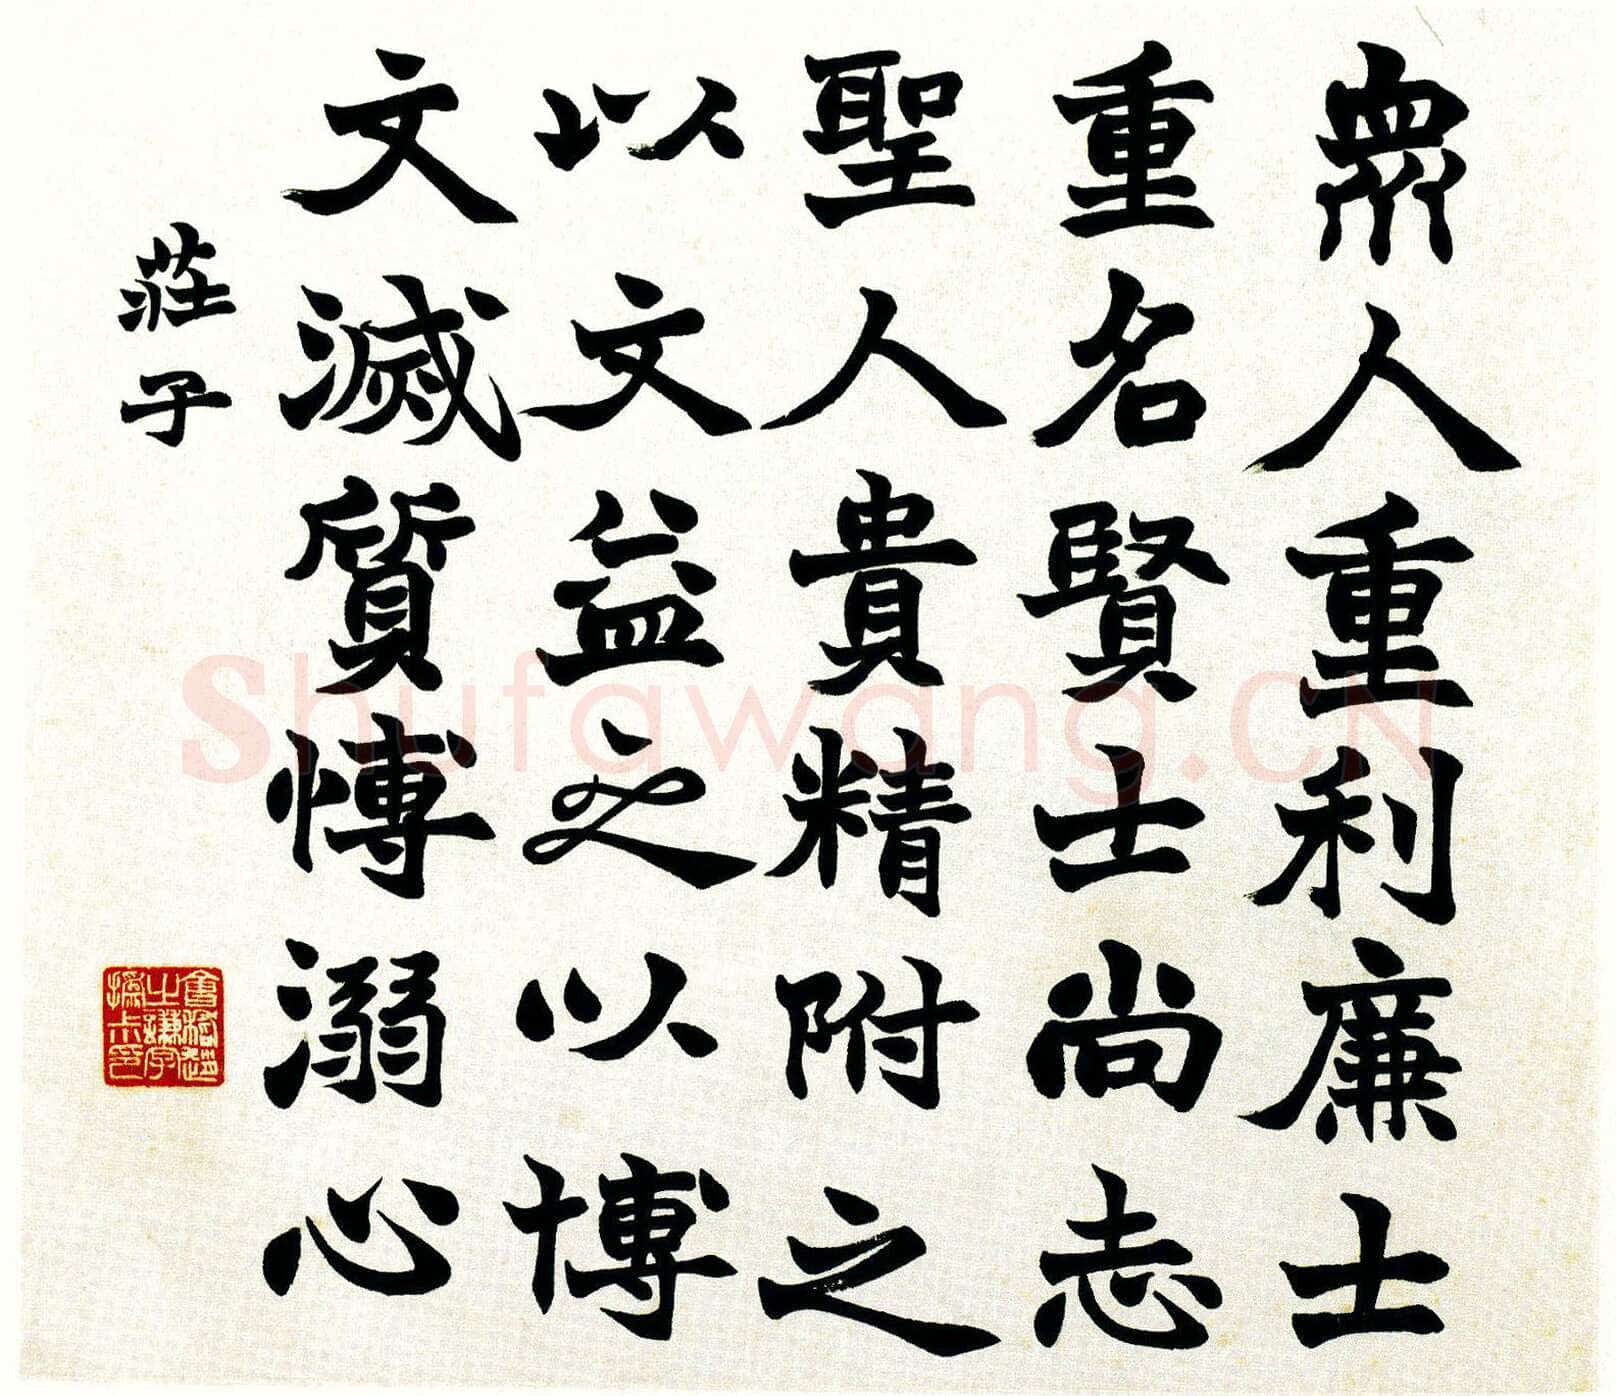 衆人重利廉士
重名賢士尚志
聖人貴精附之
以文益之以博
文滅質愽溺心
莊子
會稽趙
之謙字
撝叔印
Shufawang.CN